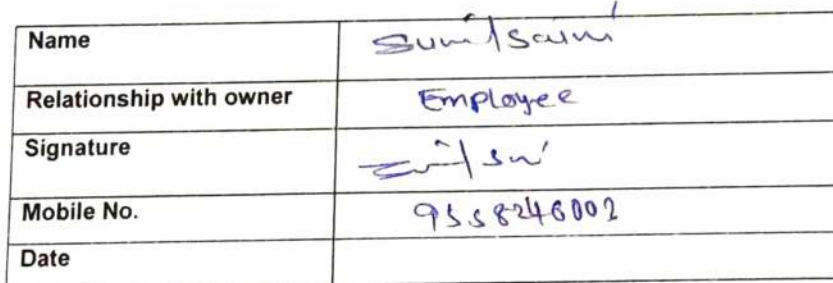 Name Sunil Saini
Relationship with owner Employee
Signature
Mobile No. 9558246002
Date